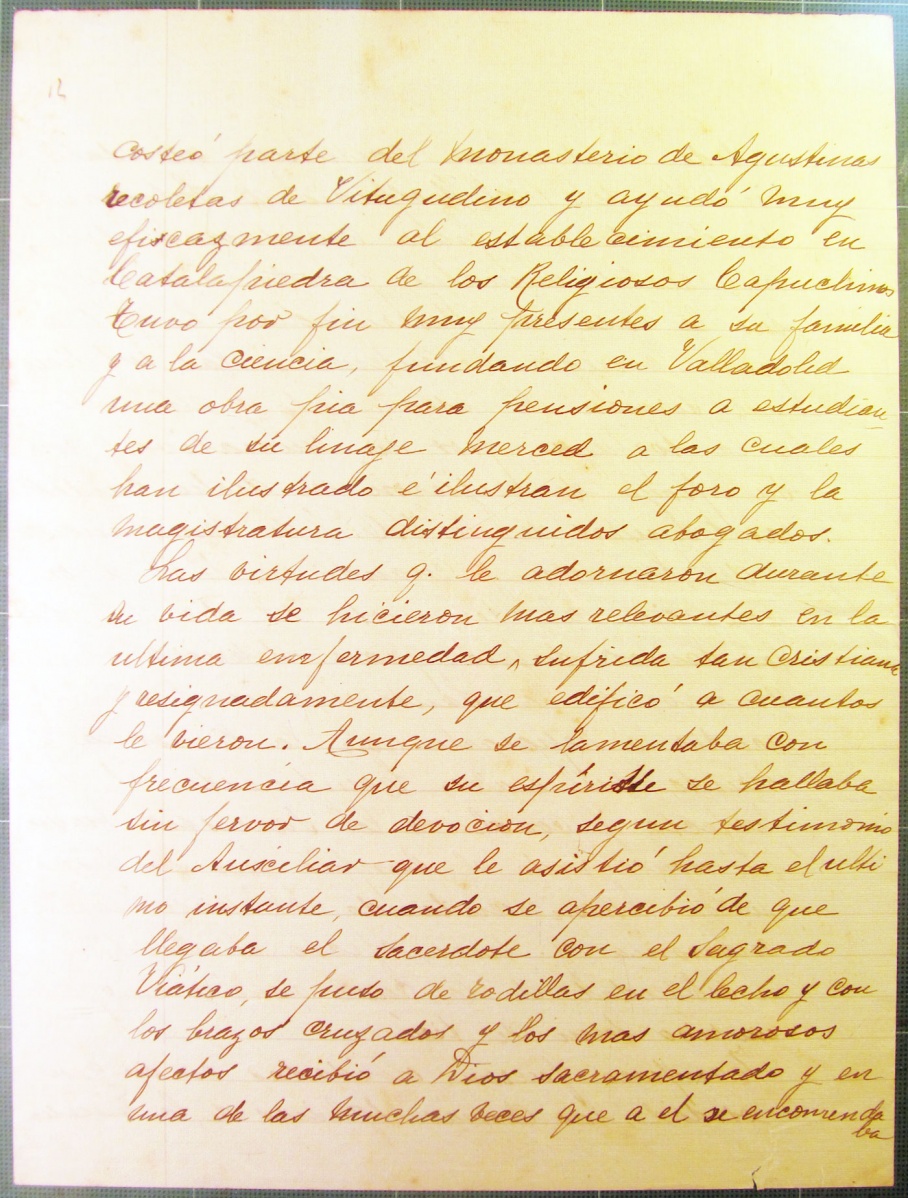 12
costeó parte del Monasterio de Agustinas
recoletas de Vitugudino y ayudó muy
eficazmente al establecimiento en
Catalapiedra de los Religiosos Capuchinos
Tuvo por fin muy presentes a su familia
y a la ciencia, fundando en Valladolid
una obra pia para pensiones a estudian-
tes de su linaje merced a las cuales
han ilustrado é ilustran el foro y la
magistratura distinguidos abogados.
Las virtudes q. le adornaron durante
su vida se hicieron mas relevantes en la
ultima enfermedad, sufrida tan cristiana
y resignadamente, que edificó a cuantos
le vieron. Aunque se lamentaba con
frecuencia que su espíritu se hallaba
sin fervor de devocion, segun testimonio
del Auxiliar que le asistió hasta el ulti
mo instante, cuando se apercibió de que
llegaba el sacerdote con el Sagrado
Viático, se puso de rodillas en el lecho y con
los brazos cruzados y los mas amorosos
afectos recibió a Dios sacramentado y en
una de las muchas veces que a el se encomenda
ba